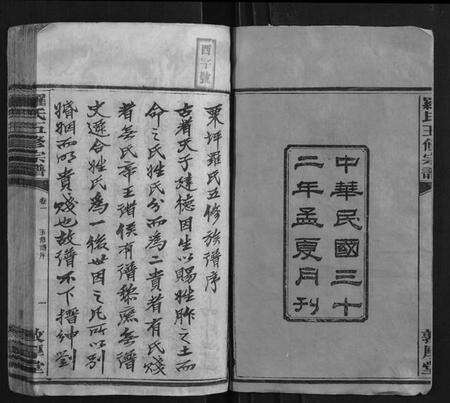 羅氏五修宗譜
中華民國三十
二年孟夏月刊
敦厚堂
酉字號
栗坪羅氏五修族譜序
古者天子建德因生以賜姓胙之土而
命之氏姓氏分而為二貴者有氏賤
者無氏帝王諸侯有譜黎庶無譜
史遷合姓氏為一後世因之氏所以別
婚姻而明貴賤也故譜不下搢紳劉
羅氏五修宗譜
卷一
一
敦厚堂